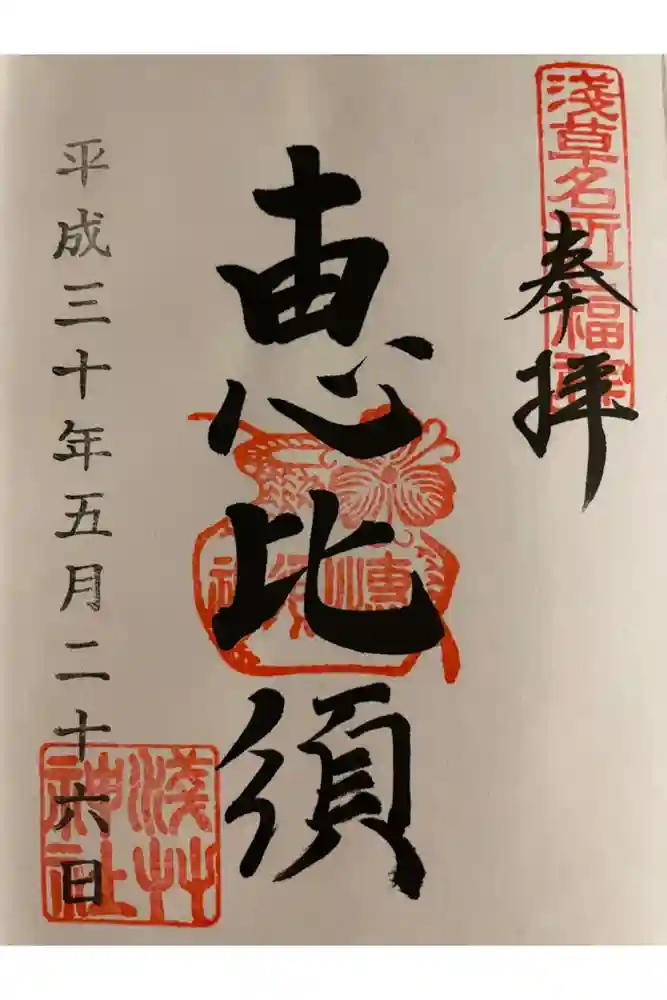 浅草名所七福神
奉拝
恵比須
平成三十年五月二十六日
浅草神社